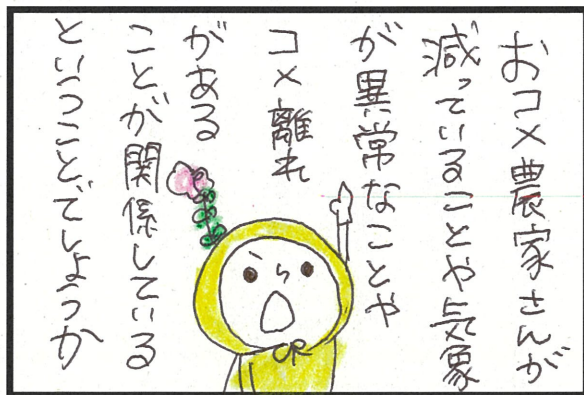 おコメ農家さんが
減っていることや気象
が異常なことや
コメ離れ
がある
ことが関係している
ということでしょうか
CR